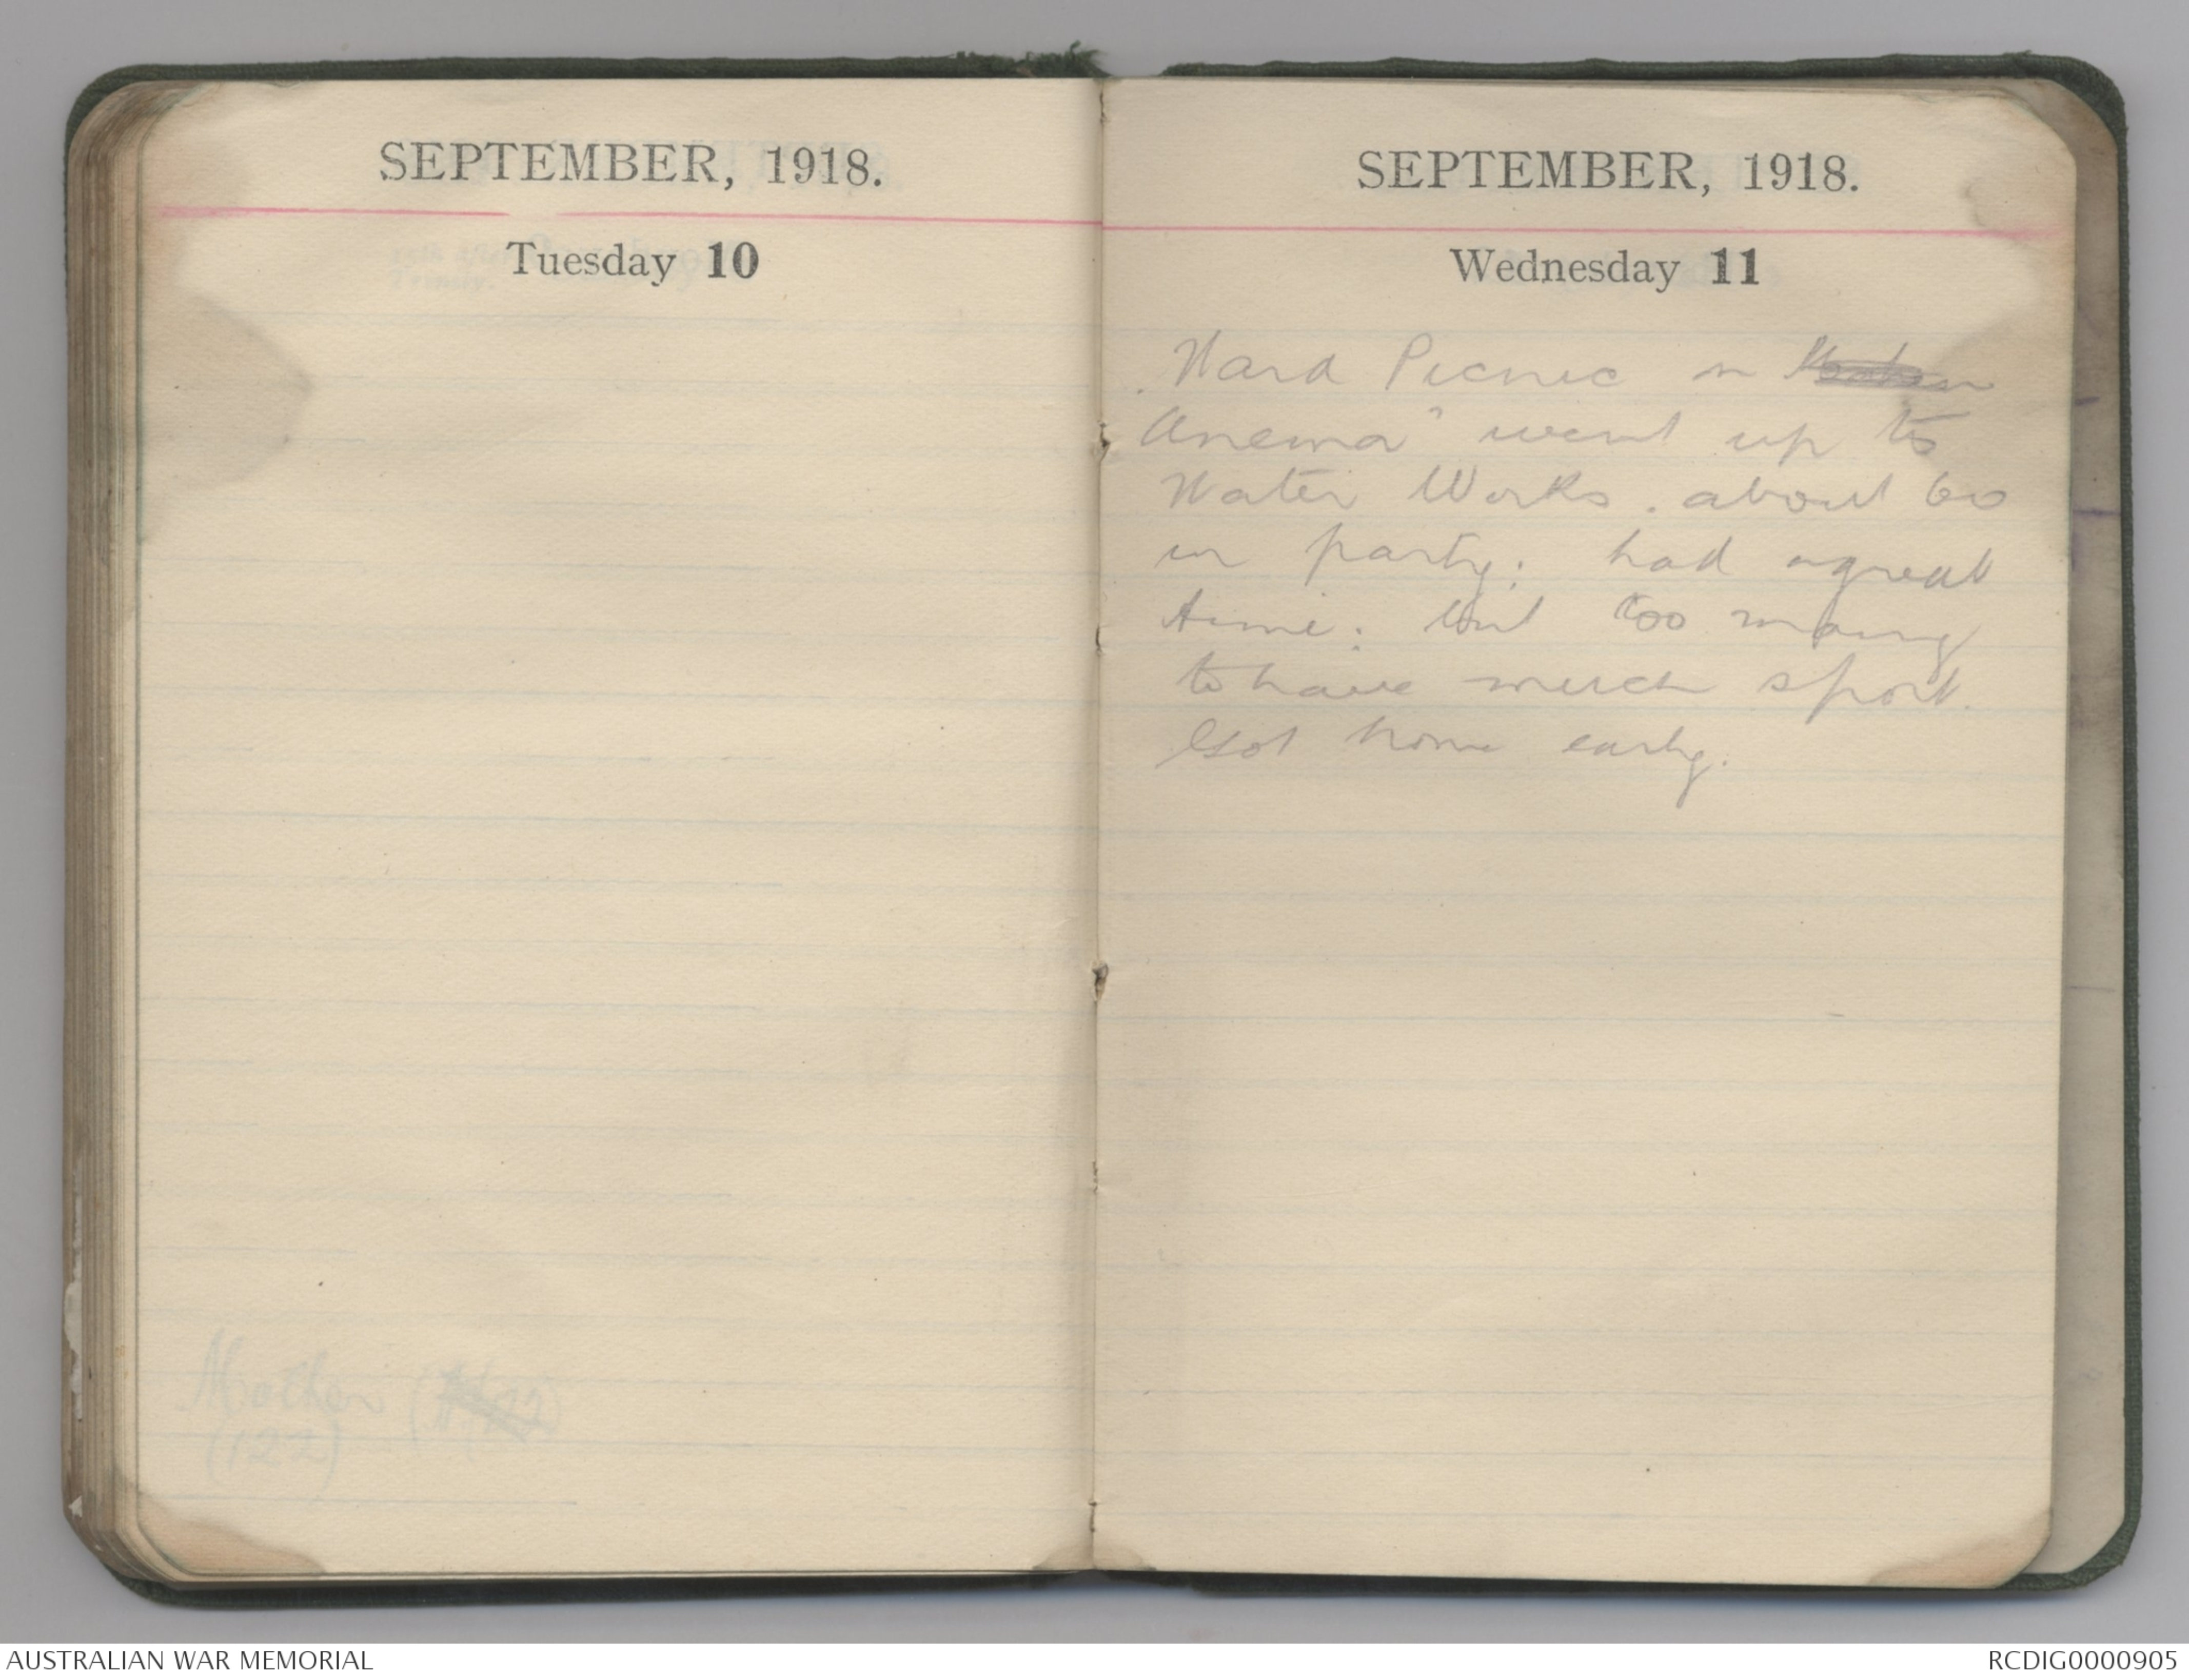 SEPTEMBER, 1918.
Tuesday 10
Mother
(122)
SEPTEMBER, 1918.
Wednesday 11
Ward Picnic in
Anema" went up to
Water Works. about 60
in party; had a great
time. but too many
to have much sport.
Got home early.
AUSTRALIAN WAR MEMORIAL
RCDIG0000905